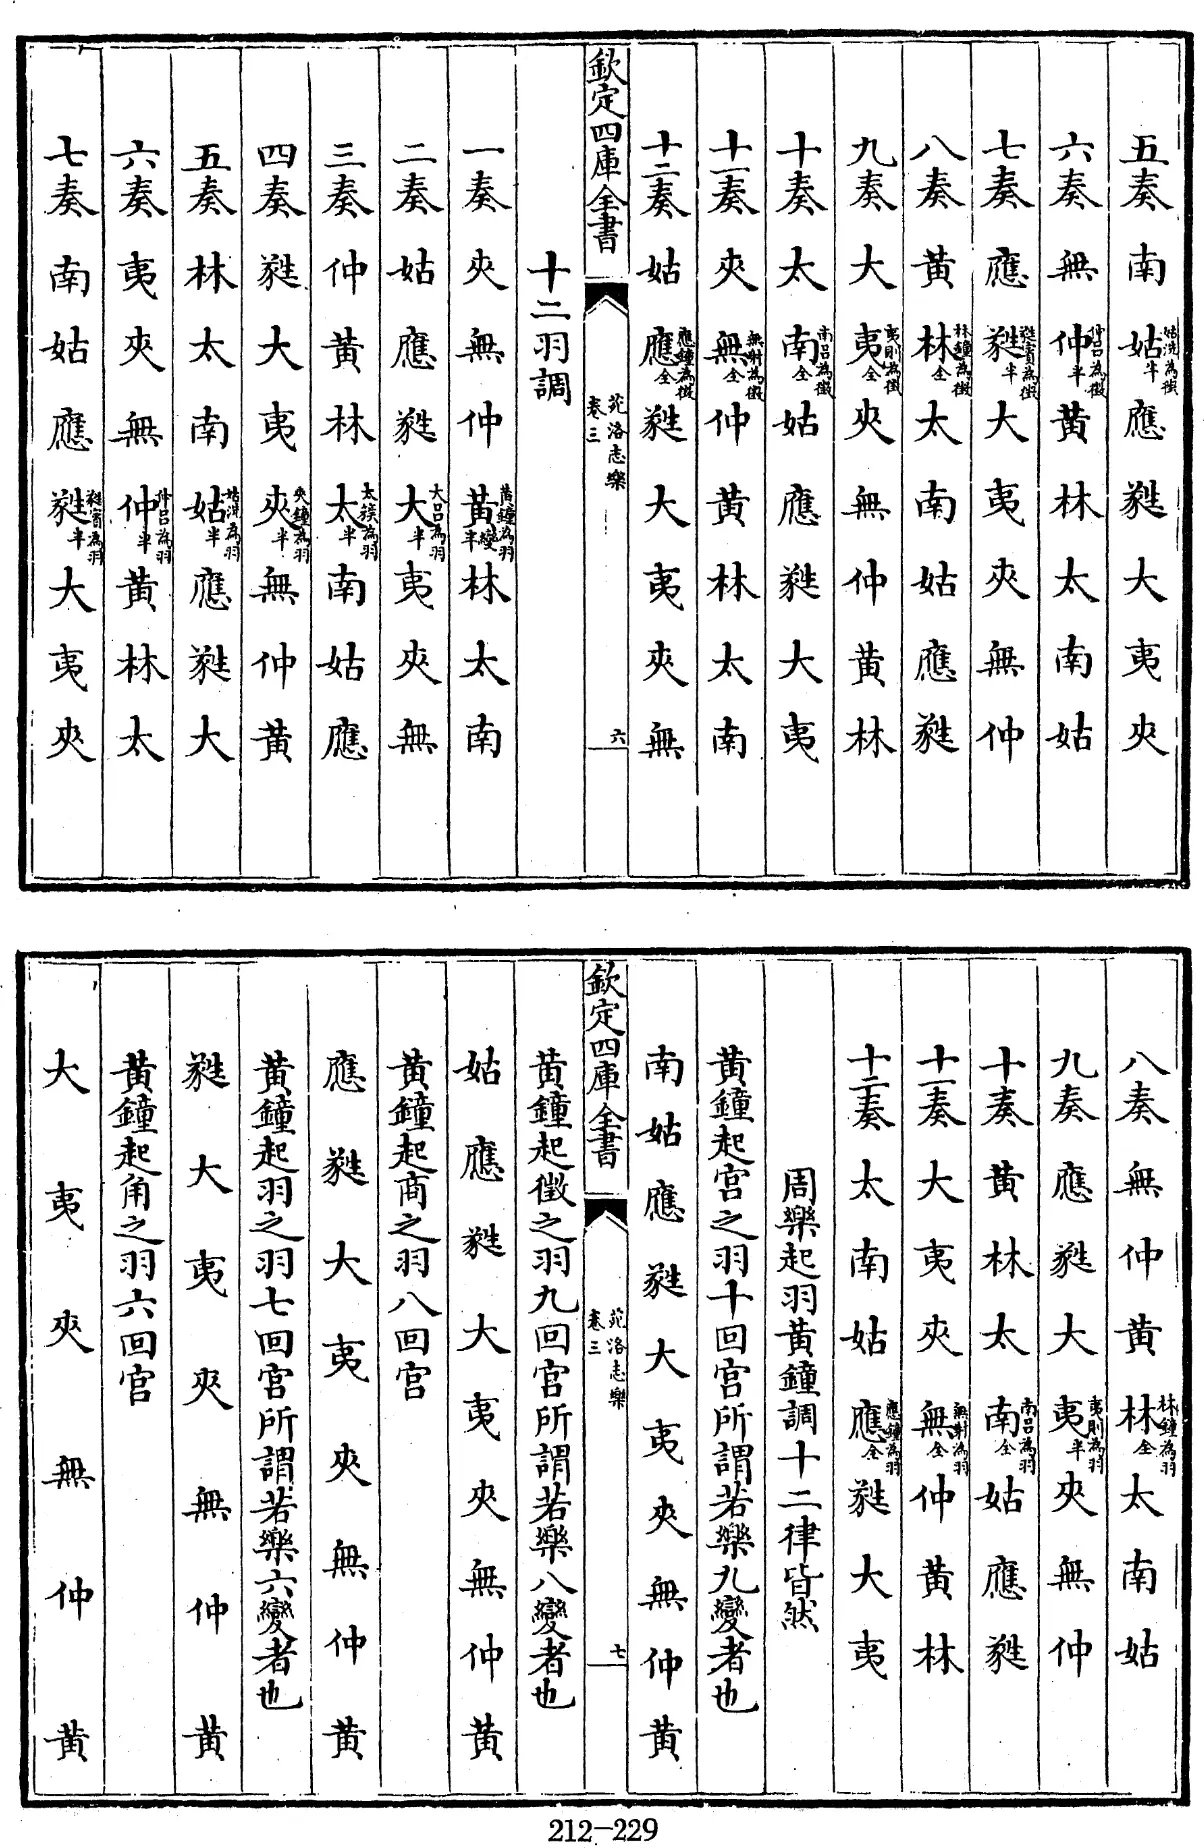 五奏南姑姑洗為徵半應甤大夷夾
六奏無仲仲呂為徵半黃林太南姑
七奏應甤甤賓為徵半大夷夾無仲
八奏黃林林鐘為徵全太南姑應甤
九奏大夷夷則為徵全夾無仲黃林
十奏太南南呂為徵全姑應甤大夷
十一奏夾無無射為徵全仲黃林太南
十二奏姑應應鐘為徵全甤大夷夾無
欽定四庫全書
苑洛志樂
卷三
六
十二羽調
一奏夾無仲黃黃鐘為羽變半林太南
二奏姑應甤大大呂為羽半夷夾無
三奏仲黃林太太簇為羽半南姑應
四奏甤大夷夾夾鐘為羽半無仲黃
五奏林太南姑姑洗為羽半應甤大
六奏夷夾無仲仲呂為羽半黃林太
七奏南姑應甤甤賓為羽半大夷夾
八奏無仲黃林林鐘為羽全太南姑
九奏應甤大夷夷則為羽半夾無仲
十奏黃林太南南呂為羽全姑應甤
十一奏大夷夾無無射為羽全仲黃林
十二奏太南姑應應鐘為羽全甤大夷
周樂起羽黃鐘調十二律皆然
黃鐘起宮之羽十回宮所謂若樂九變者也
南姑應甤大夷夾無仲黃
欽定四庫全書
苑洛志樂
卷三
七
黃鐘起徵之羽九回宮所謂若樂八變者也
姑應甤大夷夾無仲黃
黃鐘起商之羽八回宮
應甤大夷夾無仲黃
黃鐘起羽之羽七回宮所謂若樂六變者也
甤大夷夾無仲黃
黃鐘起角之羽六回宮
大夷夾無仲黃
212-229